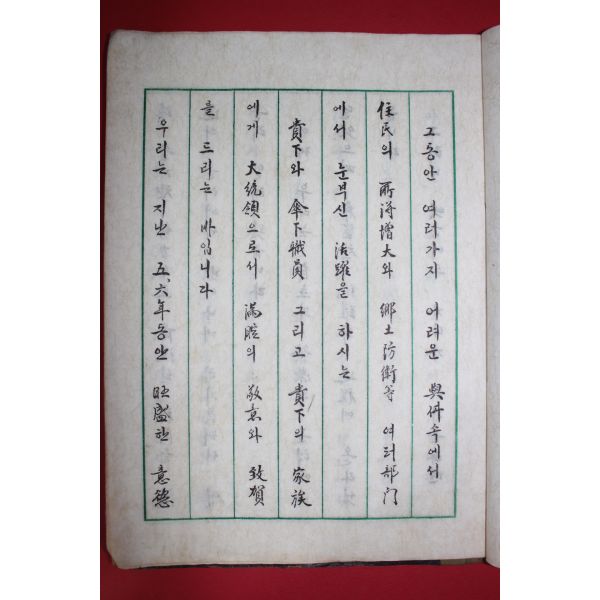 그동안 여러가지 어려운 與件속에서
住民의 所得增大와 鄕土防衛等 여러部門
에서 눈부신 活躍을 하시는
貴下와 傘下職員 그리고 貴下의 家族
에게 大統領으로서 滿腔의 敬意와 致賀
를 드리는 바입니다
우리는 지난 五、六年동안 旺盛한 意慾